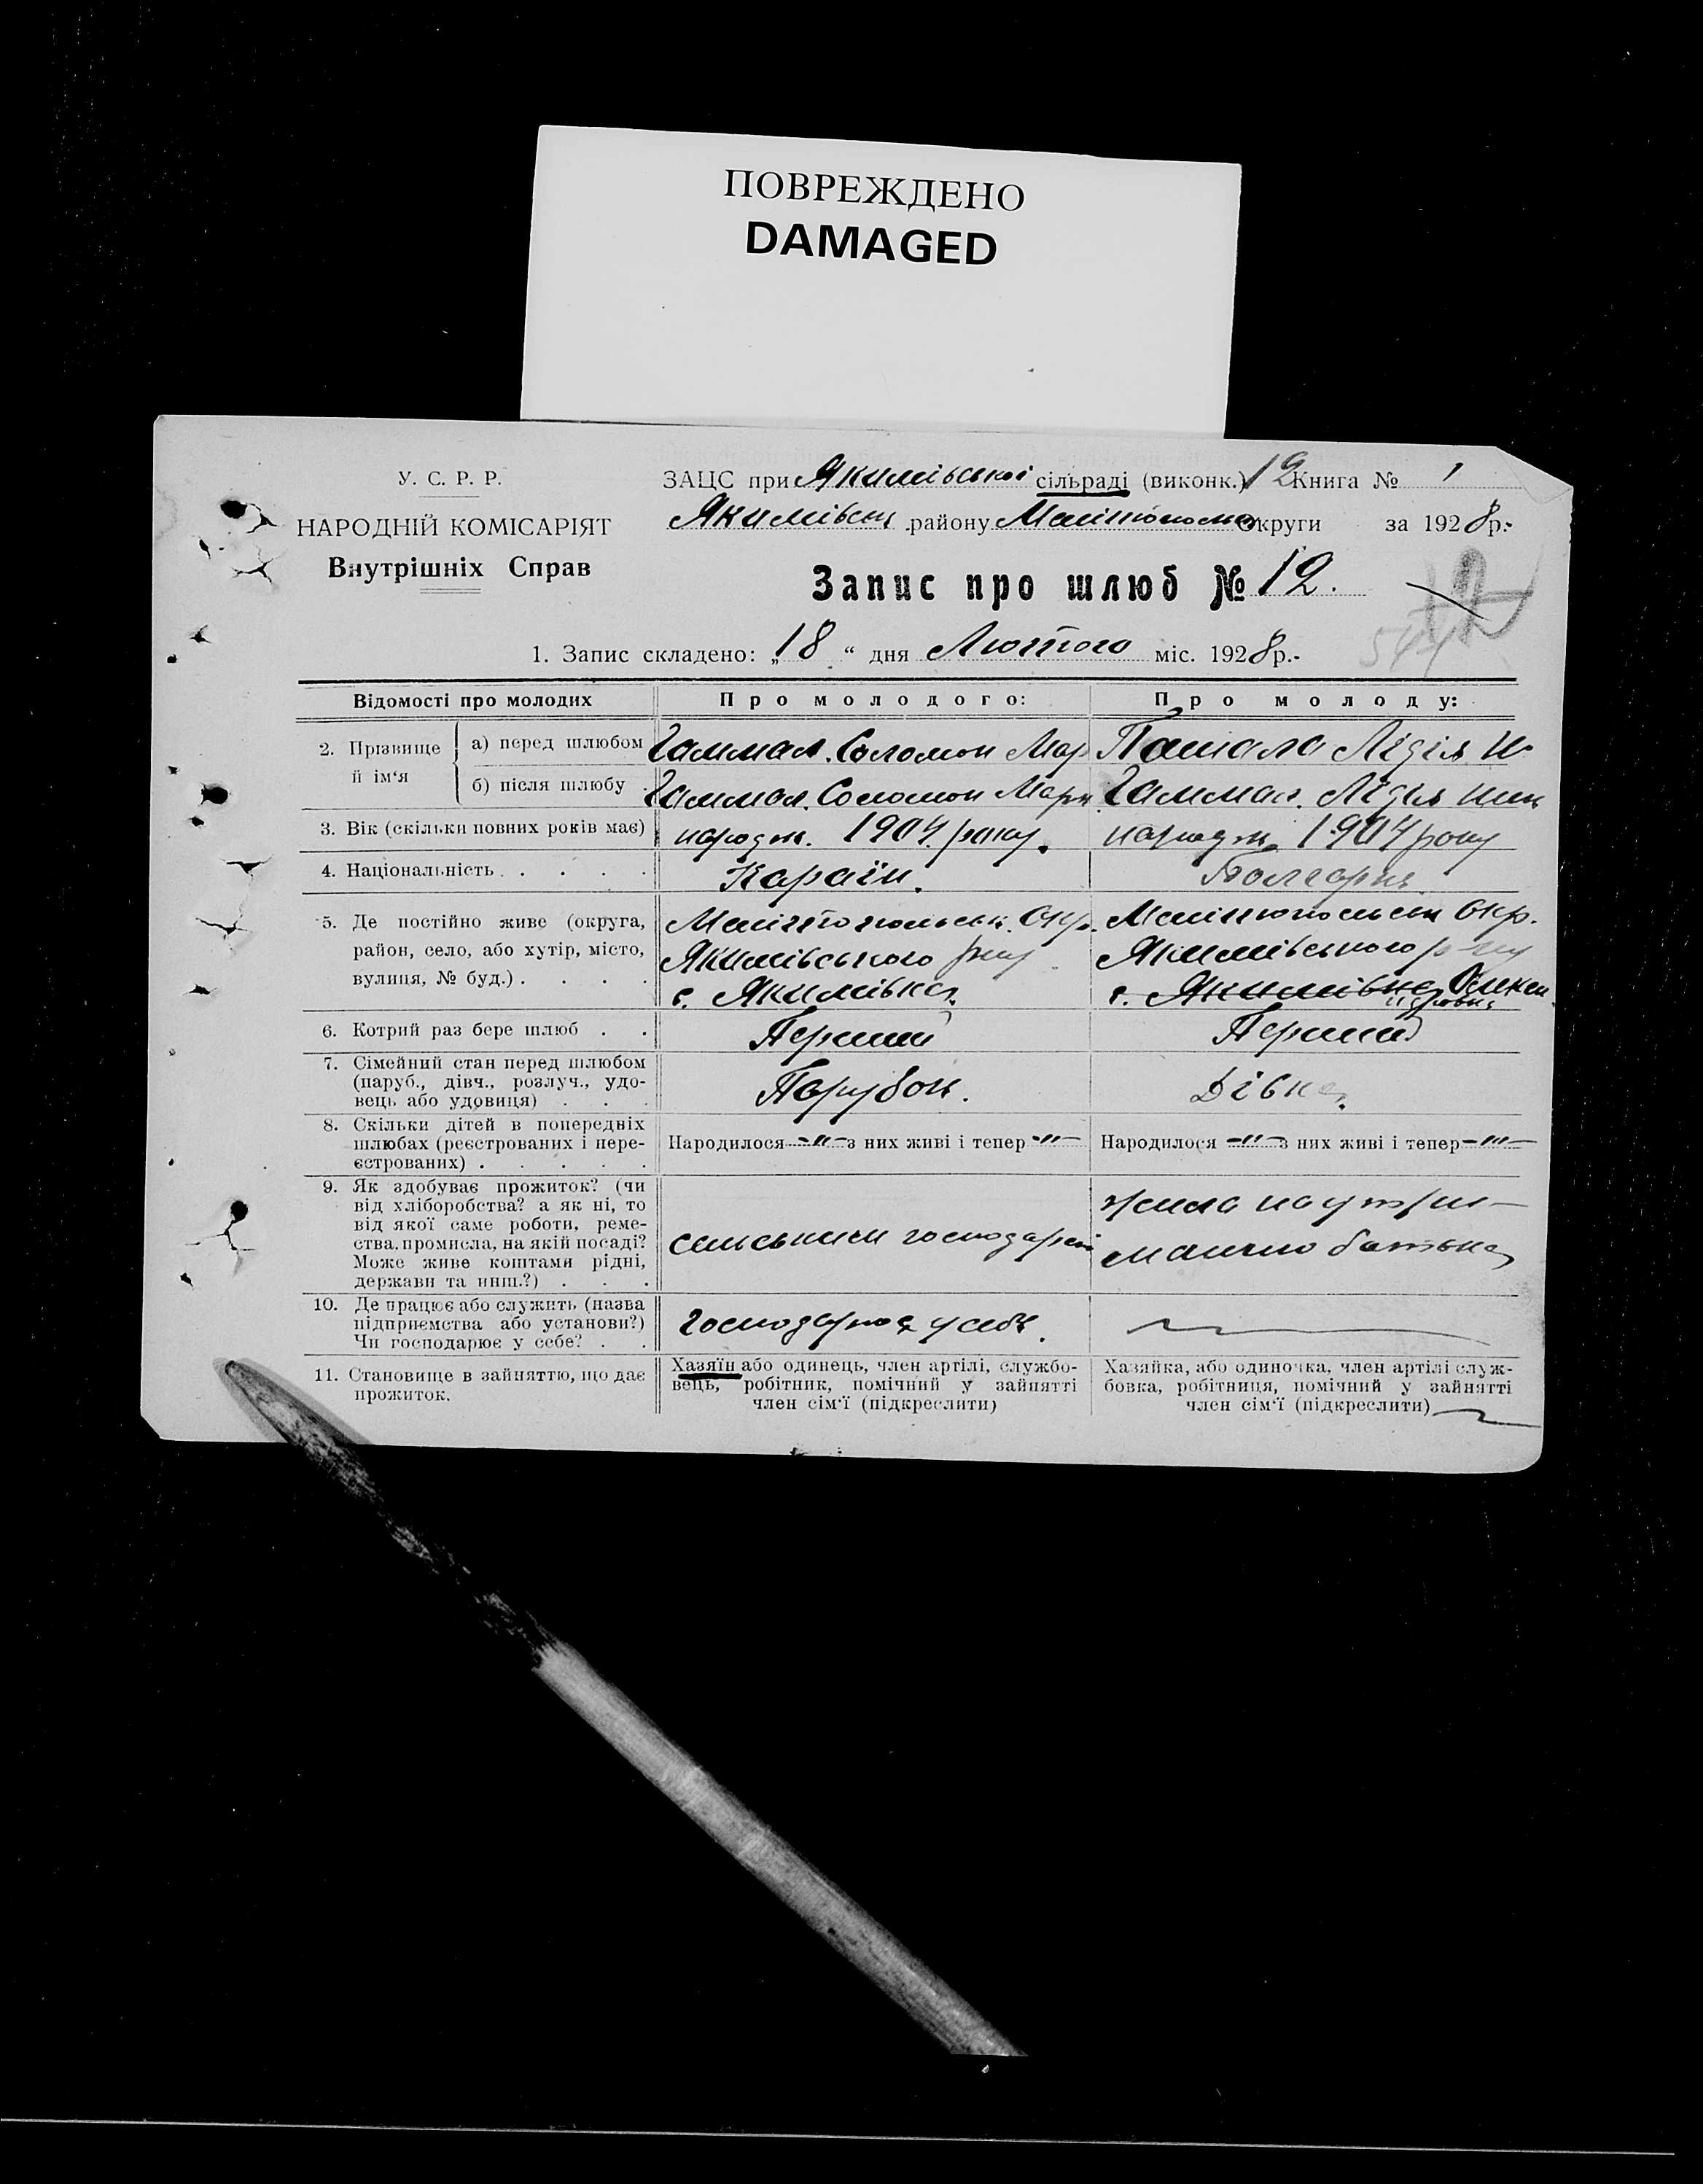 ПОВРЕЖДЕНО
DAMAGED
У. С. Р. Р.
НАРОДНІЙ КОМІСАРІЯТ
Внутрішніх Справ
ЗАЦС при Якимівської сільраді (виконк.) 12 Книга № 1
Якимівськ району Мелітопольск округи за 1928 р.
Запис про шлюб № 12.
1. Запис складено: „18“ дня Лютого міс. 1928 р.
Відомості про молодих
Про молодого:
Про молоду:
2. Прізвище й ім'я
а) перед шлюбом
Гаммал. Соломон Мар
Пашала Лідія
б) після шлюбу
Гаммал. Соломон Марк
Гаммал. Лідія
3. Вік (скільки повних років має)
народж. 1904 року.
народж. 1904 року
4. Національність
Караїн.
Болгарка
5. Де постійно живе (округа, район, село, або хутір, місто, вулиця, № буд.)
Мелітопольськ. Окр.
Якимівського р-ну
с. Якимівка
Мелітопольськ Окр.
Якимівського р-ну
с. Якимівка
6. Котрий раз бере шлюб
Перший
Перший
7. Сімейний стан перед шлюбом
(паруб., дівч., розлуч., удо-
вець або удовиця)
Парубок.
Дівка
8. Скільки дітей в попередніх
шлюбах (реєстрованих і нере-
єстрованих)
Народилося -"- з них живі і тепер -"-
Народилося -"- з них живі і тепер -"-
9. Як здобуває прожиток? (чи
від хліборобства? а як ні, то
від якої саме роботи, реме-
ства, промисла, на якій посаді?
Може живе коштами рідні,
держави та инш.?)
сільським господарств
жила на утри-
манню батька
10. Де працює або служить (назва
підприємства або установи?)
Чи господарює у себе?
господарює у себе.
11. Становище в зайняттю, що дає
прожиток.
Хазяїн або одинець, член артілі, службо-
вець, робітник, помічний у зайнятті
член сім'ї (підкреслити)
Хазяйка, або одиночка, член артілі служ-
бовка, робітниця, помічний у зайнятті
член сім'ї (підкреслити)